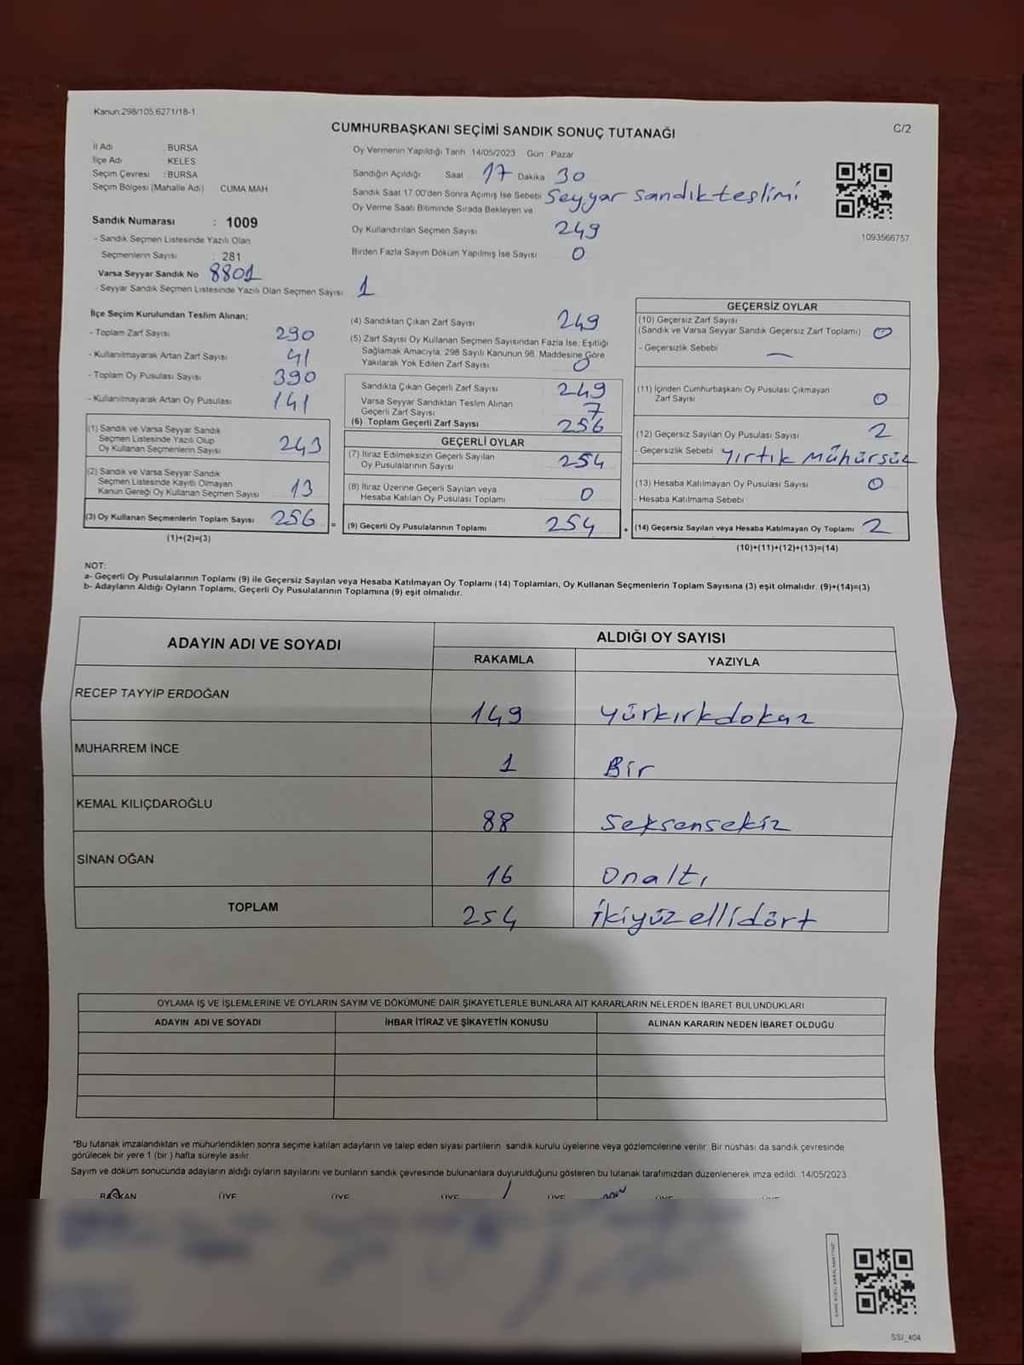 Kanun:298/105,6271/18-1
CUMHURBAŞKANI SEÇİMİ SANDIK SONUÇ TUTANAĞI
C/2
İl Adı : BURSA
İlçe Adı : KELES
Seçim Çevresi : BURSA
Seçim Bölgesi (Mahalle Adı) CUMA MAH
Sandık Numarası : 1009
- Sandık Seçmen Listesinde Yazılı Olan
Seçmenlerin Sayısı : 281
Varsa Seyyar Sandık No 8801
- Seyyar Sandık Seçmen Listesinde Yazılı Olan Seçmen Sayısı: 1
Oy Vermenin Yapıldığı Tarih 14/05/2023 Gün Pazar
Sandığın Açıldığı Saat 17 Dakika 30
Sandık Saat 17.00'den Sonra Açılmış İse Sebebi Seyyar sandık teslimi
Oy Verme Saati Bitiminde Sırada Bekleyen ve
Oy Kullandırılan Seçmen Sayısı 249
Birden Fazla Sayım Döküm Yapılmış İse Sayısı 0
1093566757
İlçe Seçim Kurulundan Teslim Alınan;
- Toplam Zarf Sayısı 290
- Kullanılmayarak Artan Zarf Sayısı 41
- Toplam Oy Pusulası Sayısı 390
- Kullanılmayarak Artan Oy Pusulası 141
(1) Sandık ve Varsa Seyyar Sandık
Seçmen Listesinde Yazılı Olup
Oy Kullanan Seçmenlerin Sayısı 243
(2) Sandık ve Varsa Seyyar Sandık
Seçmen Listesinde Kayıtlı Olmayan
Kanun Gereği Oy Kullanan Seçmen Sayısı 13
(3) Oy Kullanan Seçmenlerin Toplam Sayısı 256 =
(1)+(2)=(3)
(4) Sandıktan Çıkan Zarf Sayısı 249
(5) Zarf Sayısı Oy Kullanan Seçmen Sayısından Fazla İse, Eşitliği
Sağlamak Amacıyla, 298 Sayılı Kanunun 98. Maddesine Göre
Yakılarak Yok Edilen Zarf Sayısı 0
Sandıkta Çıkan Geçerli Zarf Sayısı 249
Varsa Seyyar Sandıktan Teslim Alınan
Geçerli Zarf Sayısı 7
(6) Toplam Geçerli Zarf Sayısı 256
GEÇERLİ OYLAR
(7) İtiraz Edilmeksizin Geçerli Sayılan
Oy Pusulalarının Sayısı 254
(8) İtiraz Üzerine Geçerli Sayılan veya
Hesaba Katılan Oy Pusulası Toplamı 0
(9) Geçerli Oy Pusulalarının Toplamı 254 +
GEÇERSİZ OYLAR
(10) Geçersiz Zarf Sayısı
(Sandık ve Varsa Seyyar Sandık Geçersiz Zarf Toplamı) 0
- Geçersizlik Sebebi —
(11) İçinden Cumhurbaşkanı Oy Pusulası Çıkmayan
Zarf Sayısı 0
(12) Geçersiz Sayılan Oy Pusulası Sayısı 2
- Geçersizlik Sebebi Yırtık Mühürsüz
(13) Hesaba Katılmayan Oy Pusulası Sayısı 0
- Hesaba Katılmama Sebebi
(14) Geçersiz Sayılan veya Hesaba Katılmayan Oy Toplamı 2
(10)+(11)+(12)+(13)=(14)
NOT:
a- Geçerli Oy Pusulalarının Toplamı (9) ile Geçersiz Sayılan veya Hesaba Katılmayan Oy Toplamı (14) Toplamları, Oy Kullanan Seçmenlerin Toplam Sayısına (3) eşit olmalıdır. (9)+(14)=(3)
b- Adayların Aldığı Oyların Toplamı, Geçerli Oy Pusulalarının Toplamına (9) eşit olmalıdır.
ADAYIN ADI VE SOYADI ALDIĞI OY SAYISI
RAKAMLA YAZIYLA
RECEP TAYYİP ERDOĞAN 149 yürkırkdokaz
MUHARREM İNCE 1 Bir
KEMAL KILIÇDAROĞLU 88 Seksensekiz
SİNAN OĞAN 16 Onaltı
TOPLAM 254 İkiyüzellidört
OYLAMA İŞ VE İŞLEMLERİNE VE OYLARIN SAYIM VE DÖKÜMÜNE DAİR ŞİKAYETLERLE BUNLARA AİT KARARLARIN NELERDEN İBARET BULUNDUKLARI
ADAYIN ADI VE SOYADI İHBAR İTİRAZ VE ŞİKAYETİN KONUSU ALINAN KARARIN NEDEN İBARET OLDUĞU
*Bu tutanak imzalandıktan ve mühürlendikten sonra seçime katılan adayların ve talep eden siyasi partilerin sandık kurulu üyelerine veya gözlemcilerine verilir. Bir nüshası da sandık çevresinde
görülecek bir yere 1 (bir) hafta süreyle asılır.
Sayım ve döküm sonucunda adayların aldığı oyların sayılarını ve bunların sandık çevresinde bulunanlara duyurulduğunu gösteren bu tutanak tarafımızdan düzenlenerek imza edildi. 14/05/2023
BAŞKAN ÜYE ÜYE ÜYE ÜYE ÜYE ÜYE
SSI_404